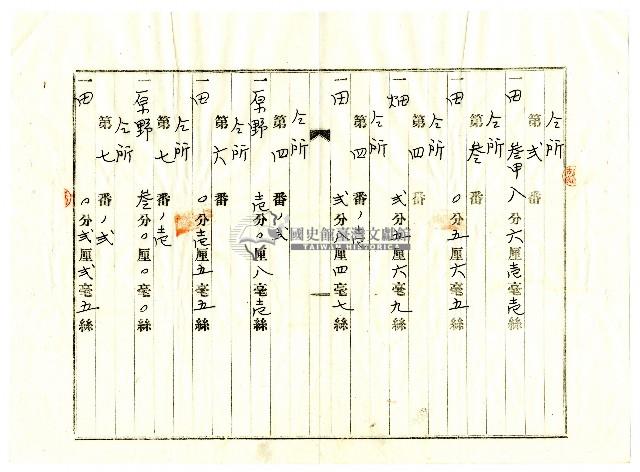 仝所
第弍番
一田 叄甲八分六厘壱毫壱絲
仝所
第叄番
一田 〇分五厘六毫五絲
仝所
第四番
一畑 弍分五厘六毫九絲
仝所
第四番ノ壱
一田 弍分八厘四毫七絲
仝所
第四番ノ弍
一原野 壱分〇厘八毫壱絲
仝所
第六番
一田 〇分壱厘五毫五絲
仝所
第七番ノ壱
一原野 叄分〇厘〇毫〇絲
仝所
第七番ノ弍
一田 〇分弍厘弍毫五絲
國史館臺灣文獻館
TAIWAN HISTORICA